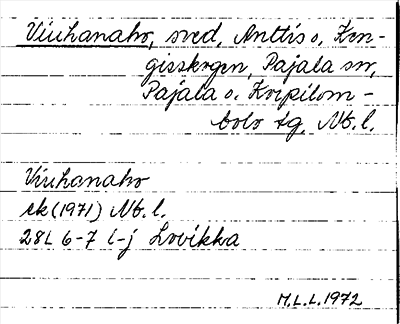 Viuhanaho, sved, Anttis o, Ken-
gisskogen, Pajala sn,
Pajala o. Korpilom-
bolo tg, Nb. l.
Viuhanaho
ek (1971) Nb. l.
28L 6-7 i-j Lovikka
M.L.L. 1972